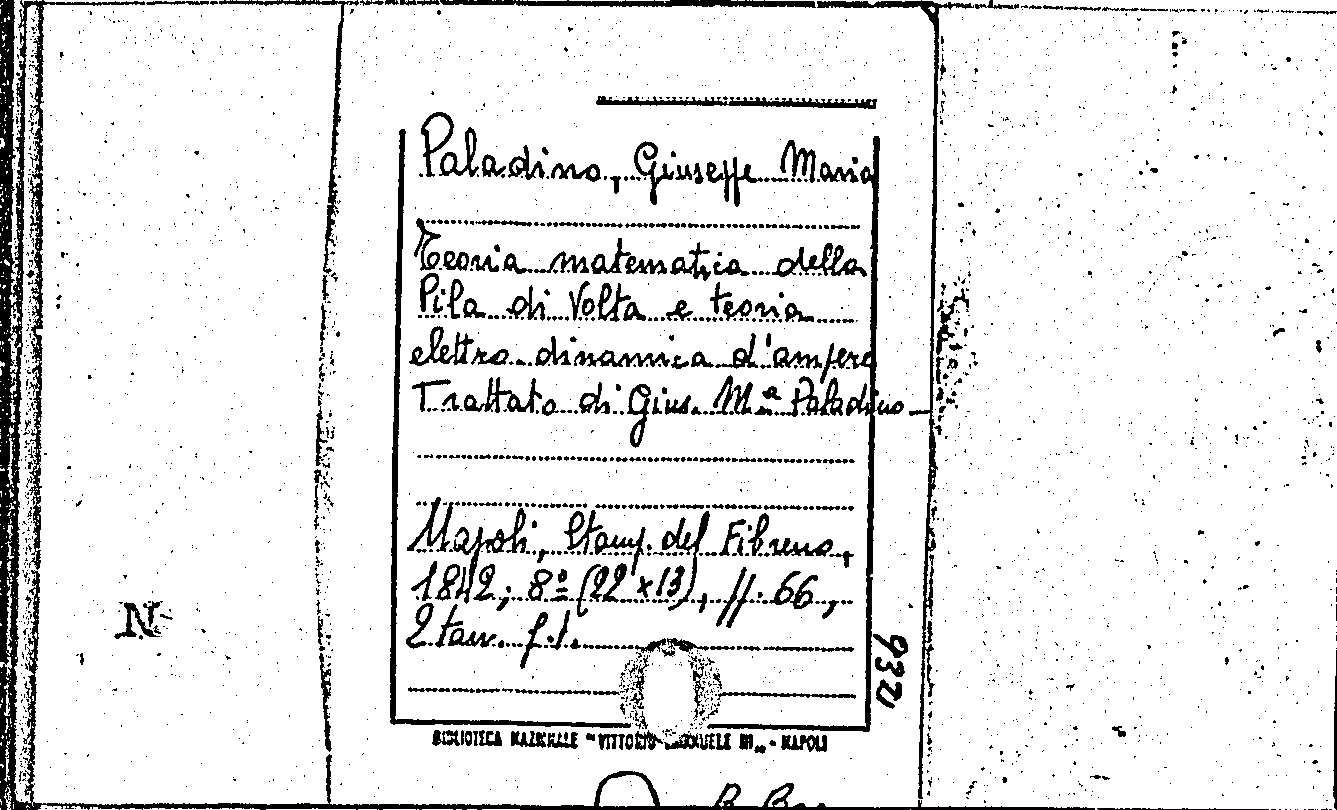 Paladino, Giuseppe Maria
Teoria matematica della
Pila di Volta e teoria
elettro dinamica d'ampere
Trattato di Gius. M.ª Paladino
Napoli, Stamp. del Fibreno,
1842; 8º (22 x 13), pp. 66,
2 tav. f.t.
9321
N
BIBLIOTECA NAZIONALE "VITTORIO EMANUELE III" - NAPOLI